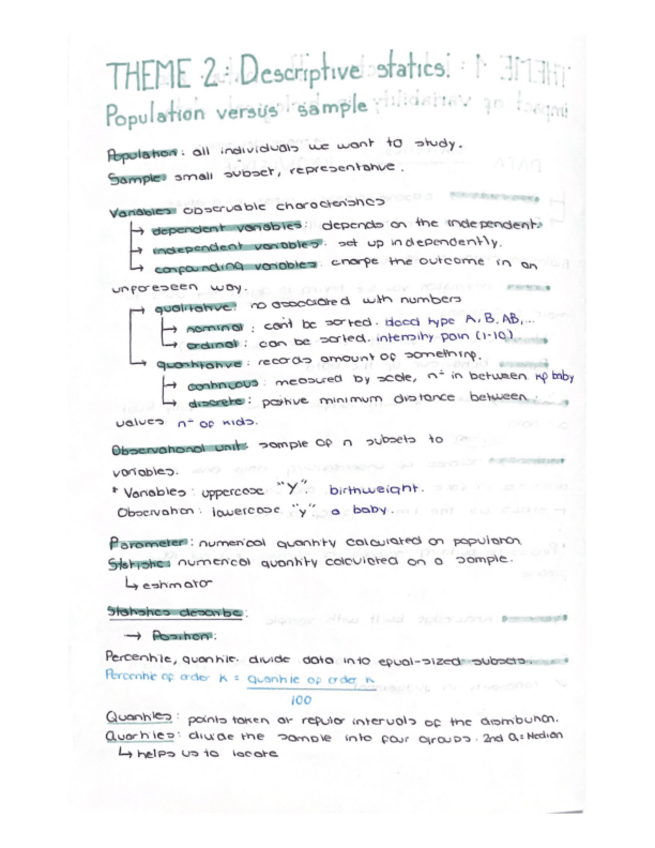 THEME 2: Descriptive statics.
Population versus sample
Population: all individuals we want to study.
Sample: small subset, representative.
Variables: observable characteristics
→ dependent variables: depends on the independent.
→ independent variables: set up independently.
→ confounding variables: change the outcome in an
unforeseen way.
→ qualitative: no associated with numbers
→ nominal: can't be sorted. blood type A, B, AB,...
→ ordinal: can be sorted. intensity pain (1-10)
→ quantitative: records amount of something.
→ continuous: measured by scale, nº in between kg baby
→ discrete: positive minimum distance between
values nº of kids.
Observational unit: sample of n subsets to
variables.
* Variables: uppercase "Y". birthweight.
Observation: lowercase "y" a baby.
Parameter: numerical quantity calculated on population
Statistic: numerical quantity calculated on a sample.
↳ estimator
Statistics describe:
→ Position:
Percentile, quantile. divide data into equal-sized subsets
Percentile of order k = quantile of order k
100
Quantiles: points taken at regular intervals of the distribution.
Quartiles: divide the sample into four groups. 2nd Q = Median
↳ helps us to locate